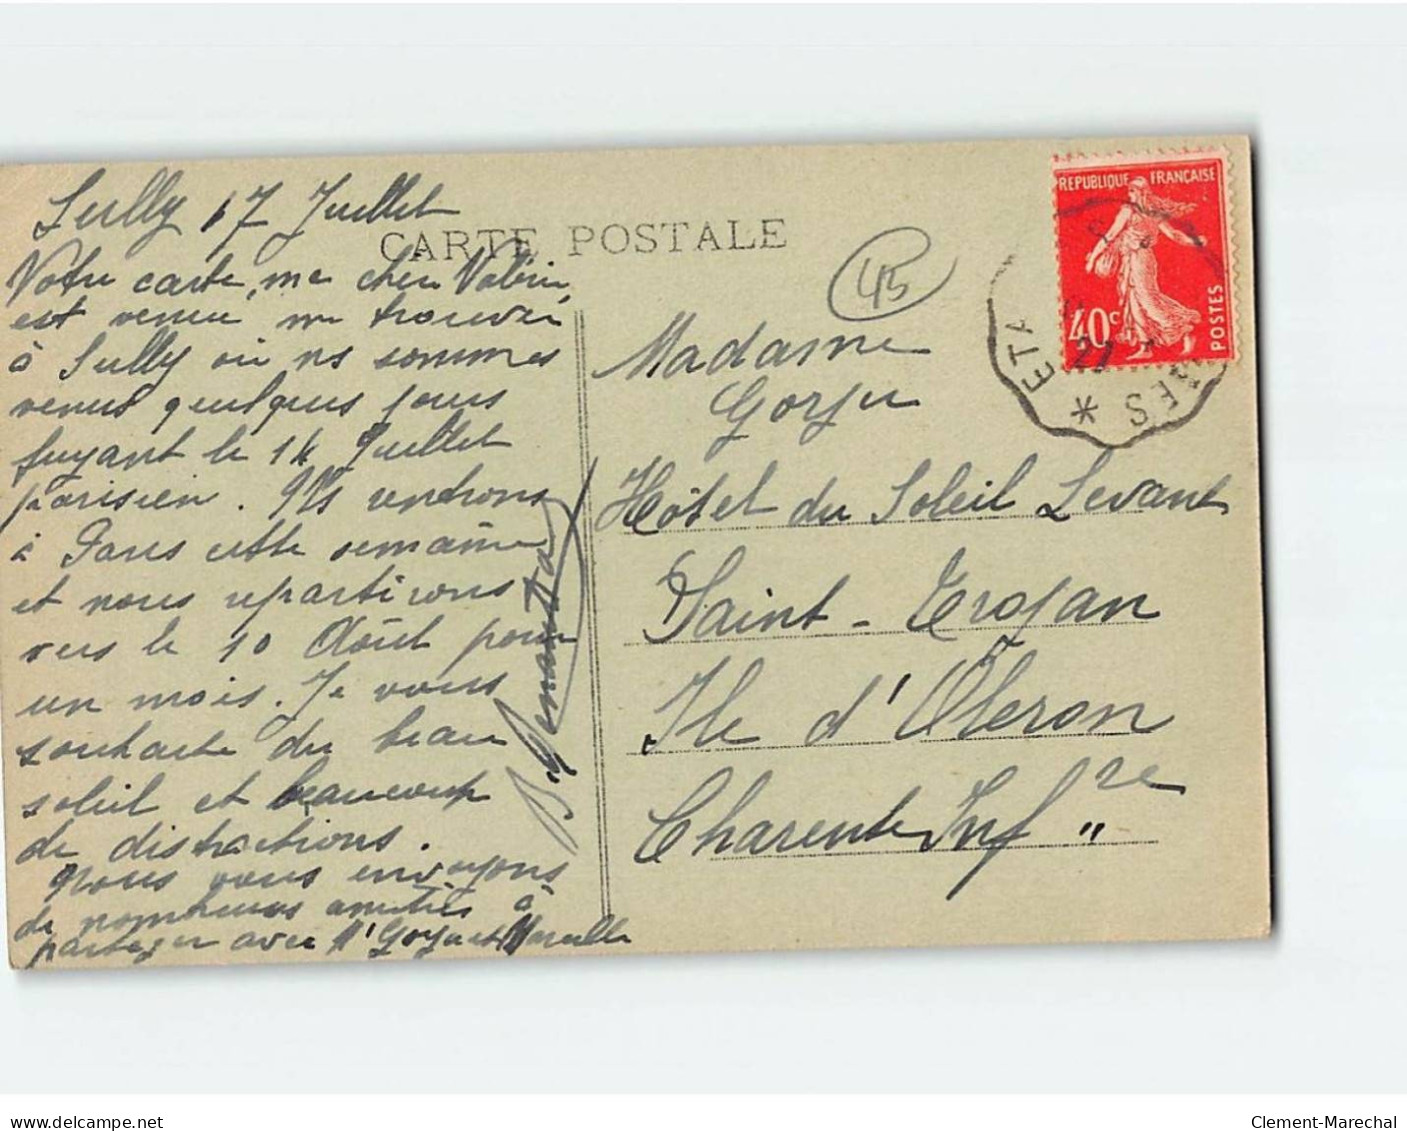 Sully 17 Juillet
CARTE POSTALE
45
Votre carte, ma chère Valérie,
est venue me trouver
à Sully où ns sommes
venus quelques jours
fuyant le 14 Juillet
parisien. Ns rentrons
à Paris cette semaine
et nous repartirons
vers le 10 Août pour
un mois. Je vous
souhaite du beau
soleil et beaucoup
de distractions.
Nous vous envoyons
de nombreuses amitiés à
partager avec Mr Gorju et Marcelle
REPUBLIQUE FRANÇAISE
40c
POSTES
ETA
27
RES
Madame
Gorju
Hôtel du Soleil Levant
Saint-Trojan
Ile d'Oleron
Charente Infre
delcampe.net
Clement-Marechal